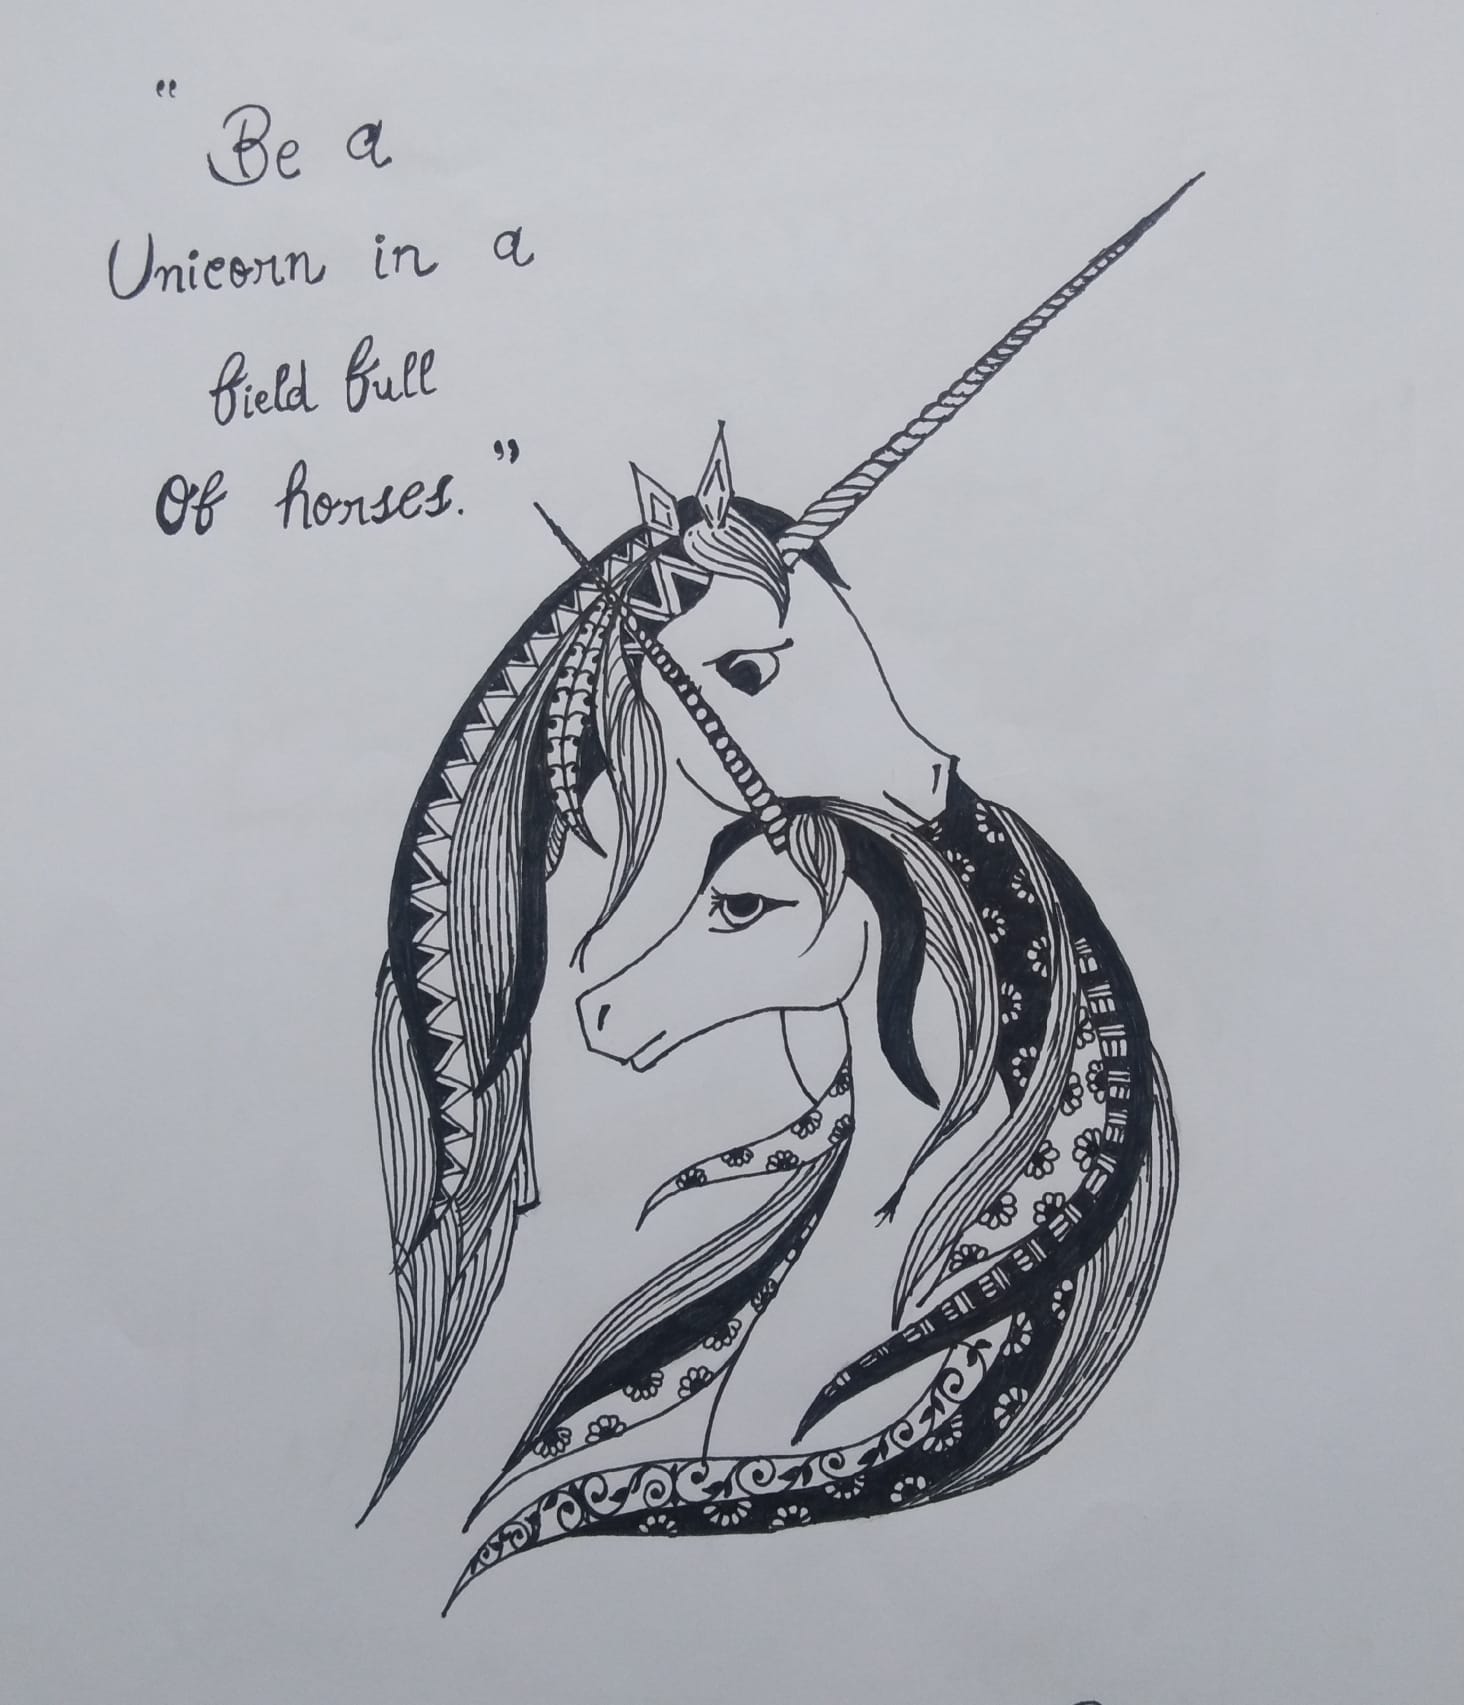 "Be a
Unicorn in a
field full
Of horses."